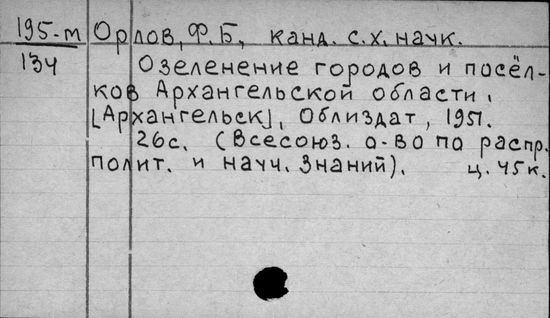 195-м Орлов, Ф.Б., канд. с.х. наук.
134 Озеленение городов и посёл-
ков Архангельской области.
[Архангельск], Облиздат, 1951.
26с. (Всесоюз. о-во по распр.
полит. и науч. Знаний). ц. 45к.